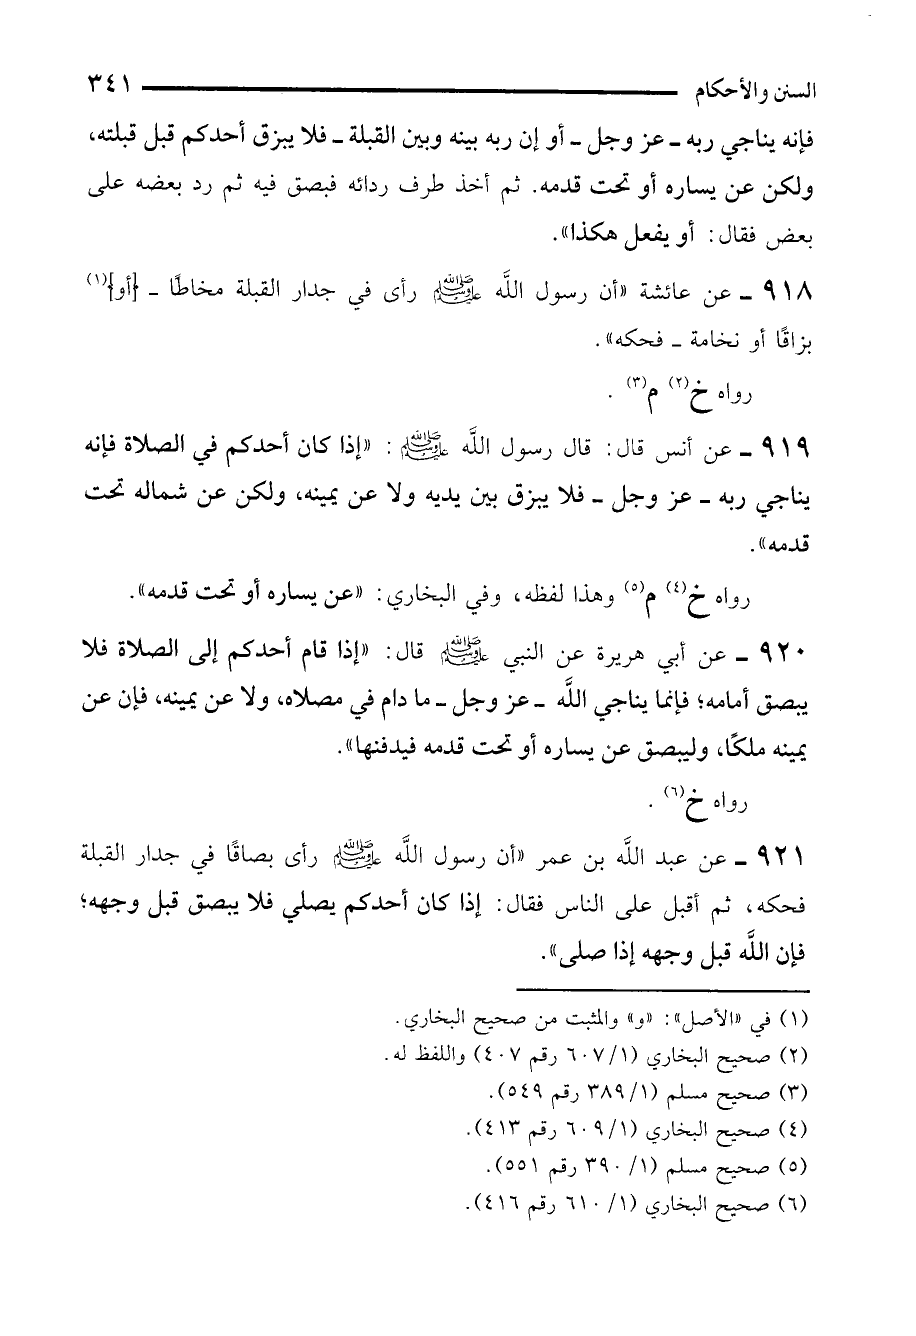 السنن والأحكام ٣٤١
فإنه يناجي ربه ـ عز وجل ـ أو إن ربه بينه وبين القبلة ـ فلا يبزق أحدكم قبل قبلته،
ولكن عن يساره أو تحت قدمه. ثم أخذ طرف ردائه فبصق فيه ثم رد بعضه على
بعض فقال: أو يفعل هكذا».
٩١٨ ـ عن عائشة «أن رسول اللَّه ﷺ رأى في جدار القبلة مخاطًا ـ [أو](١)
بزاقًا أو نخامة ـ فحكه».
رواه خ(٢) م(٣) .
٩١٩ ـ عن أنس قال: قال رسول اللَّه ﷺ: «إذا كان أحدكم في الصلاة فإنه
يناجي ربه ـ عز وجل ـ فلا يبزق بين يديه ولا عن يمينه، ولكن عن شماله تحت
قدمه».
رواه خ(٤) م(٥) وهذا لفظه، وفي البخاري: «عن يساره أو تحت قدمه».
٩٢٠ ـ عن أبي هريرة عن النبي ﷺ قال: «إذا قام أحدكم إلى الصلاة فلا
يبصق أمامه؛ فإنما يناجي اللَّه ـ عز وجل ـ ما دام في مصلاه، ولا عن يمينه، فإن عن
يمينه ملكًا، وليبصق عن يساره أو تحت قدمه فيدفنها».
رواه خ(٦) .
٩٢١ ـ عن عبد اللَّه بن عمر «أن رسول اللَّه ﷺ رأى بصاقًا في جدار القبلة
فحكه، ثم أقبل على الناس فقال: إذا كان أحدكم يصلي فلا يبصق قبل وجهه؛
فإن اللَّه قبل وجهه إذا صلى».
(١) في «الأصل»: «و» والمثبت من صحيح البخاري.
(٢) صحيح البخاري (١/ ٦٠٧ رقم ٤٠٧) واللفظ له.
(٣) صحيح مسلم (١/ ٣٨٩ رقم ٥٤٩).
(٤) صحيح البخاري (١/ ٦٠٩ رقم ٤١٣).
(٥) صحيح مسلم (١/ ٣٩٠ رقم ٥٥١).
(٦) صحيح البخاري (١/ ٦١٠ رقم ٤١٦).